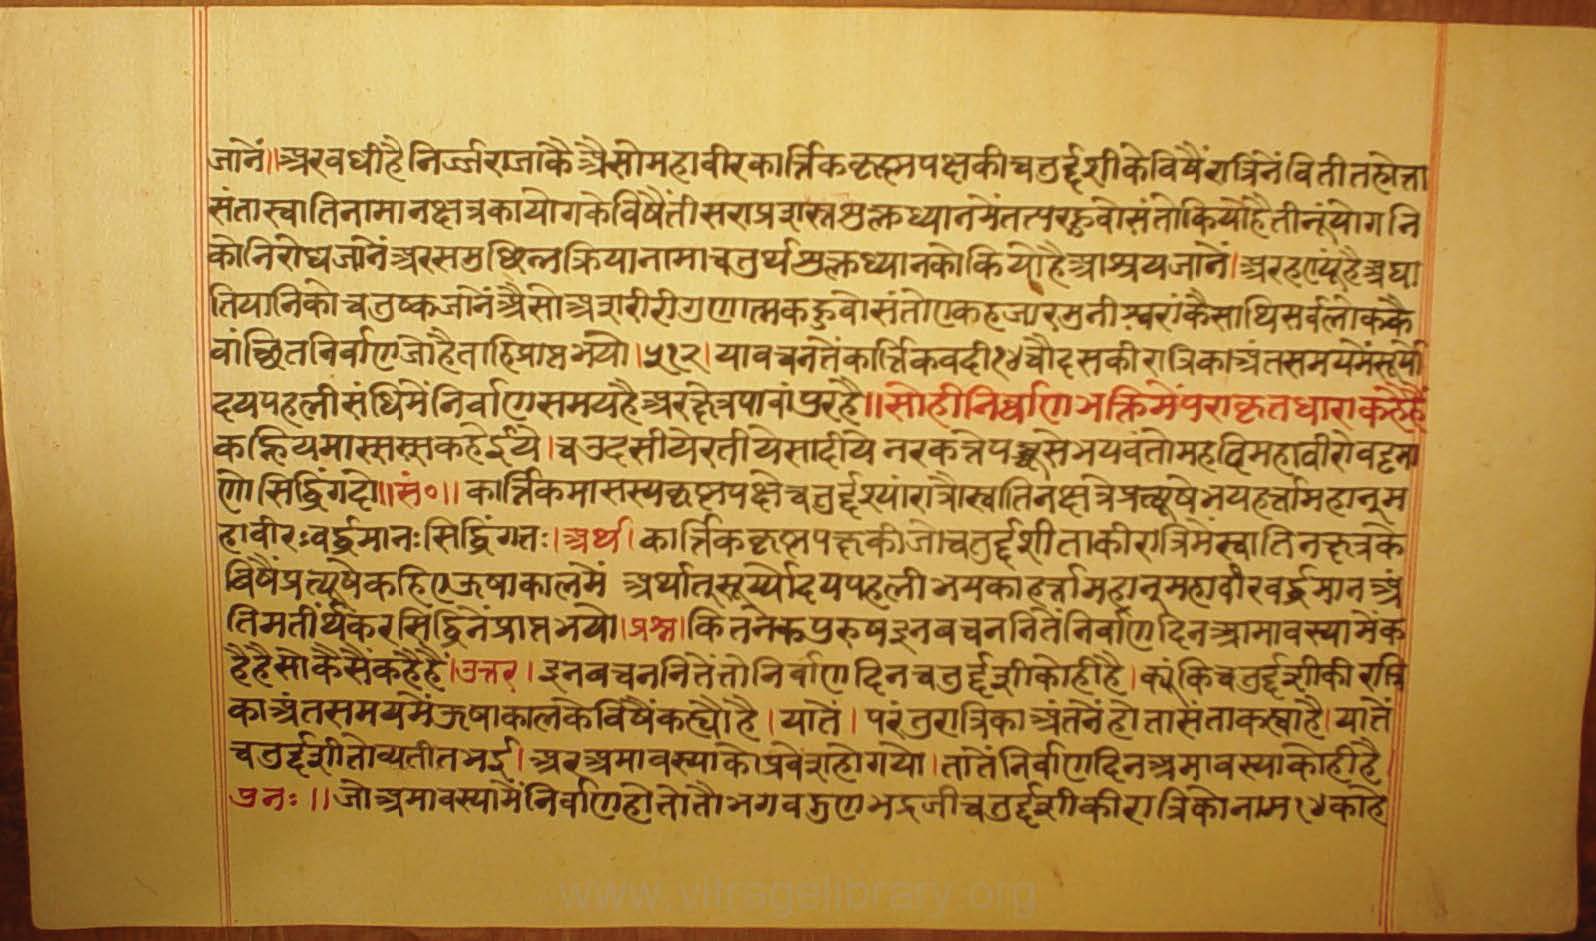 जानें॥अरवधीहैनिर्ज्जराजाकैअैसोमहावीरकार्त्तिककृष्णपक्षकीचतुर्द्दशीकेविषैंरात्रिनेंवितीतहोत्ता
संतास्वातिनामानक्षत्रकायोगकेविषैंतीसराप्रशस्तशुक्लध्यानमेंतत्परहुवोसंतोकियोहैतीनूंयोगनि
कोनिरोधजानेंअरसमुछिन्नक्रियानामाचतुर्थशुक्लध्यानकोकियोहैआश्रयजानें।अरहण्यूंहैअघा
तियानिकोचतुष्कजानेंअैसोअशरीरीगुणात्मकहुवोसंतोएकहजारमुनीश्वरांकैसाथिसर्वलोककै
वांछितनिर्वाणजोहैताहिप्राप्तभयो।५१२।यावचनतेंकार्त्तिकवदी१४चौदसकीरात्रिकाअंतसमयमेंसूर्यो
दयपहलीसंधिमेंनिर्वाणसमयहैअरक्षेत्रपावांपुरहै॥सोहीनिर्व्वाणभक्तिमेंपराकृतधाराकहैहैं
कत्तियमासस्सकहेईये।चउदसीयेरतीयेसादीये नरकत्तेपच्चुसेभयवंतोमहविमहावीरोवट्टमा
णोसिद्धिंगदो॥सं०॥कार्त्तिकमासस्यकृष्णपक्षेचतुर्द्दश्यांरात्रौस्वातिनक्षत्रेप्रत्यूषेभयहर्त्तामहानुम
हावीरःवर्द्धमानःसिद्धिंगतः।अर्थ।कार्त्तिककृष्णपक्षकीजोचतुर्द्दशीताकीरात्रिमेंस्वातिनक्षत्रके
विषैंप्रत्यूषेकहिएऊषाकालमें अर्थात्सूर्य्योदयपहलीभयकाहर्त्तामहानुमहावीरवर्द्धमानअं
तिमतीर्थंकरसिद्धिनेंप्राप्तभयो।प्रश्न।कितनेकपुरुषइनवचननितेंनिर्वाणदिनआमावस्यामेंक
हैहैसोकैसैंकहैहैं।उत्तर।इनवचननितेंतोनिर्वाणदिनचतुर्द्दशीकोहीहै।क्यूंकिचतुर्द्दशीकीरात्रि
काअंतसमयमेंऊषाकालकेविषैंकह्योहै।यातें।परंतुरात्रिकाअंतनेंहोतासंताकह्याहै।यातें
चतुर्द्दशीतोव्यतीतभई।अरअमावस्याकोप्रवेशहोगयो।तातेंनिर्वाणदिनअमावस्याकोहीहै
पुनः॥जोअमावस्यामेंनिर्वाणहोतोतौभगवद्गुणभद्रजीचतुर्द्दशीकीरात्रिकोनाम१४काहै
www.vitragelibrary.org